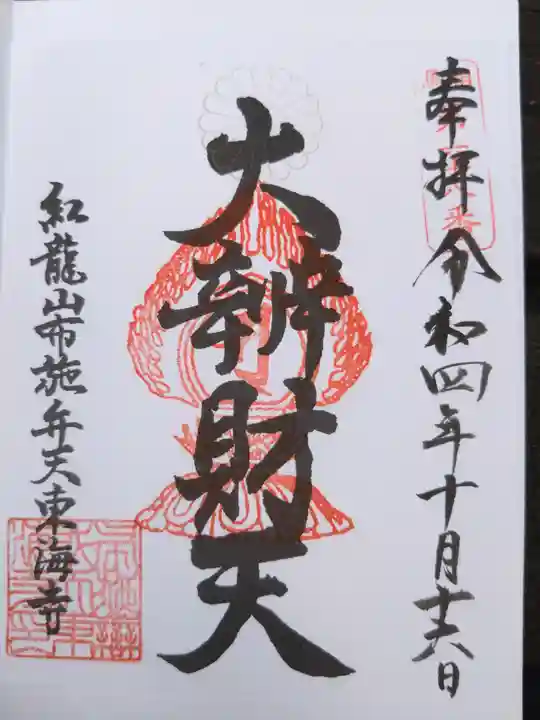 奉拝 令和四年十月十六日
大辨財天
紅龍山布施弁天東海寺